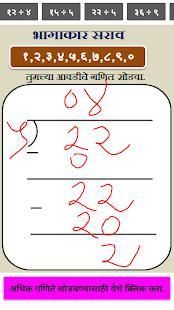 १२÷४ १५÷५ २२÷५ ३६÷९
भागाकार सराव
१,२,३,४,५,६,७,८,९,०
तुमच्या आवडीचे गणित सोडवा.
०४
५ २२
०
२२
२०
२
अधिक गणिते सोडवण्यासाठी येथे क्लिक करा.